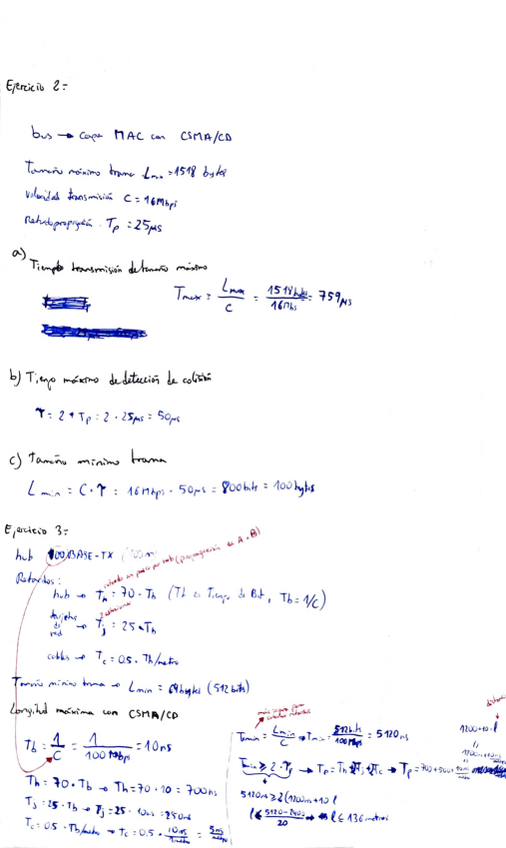 Ejercicio 2:
bus → capa MAC con CSMA/CD
Tamaño máximo trama Lmax = 1518 bytes
velocidad transmisión C = 16Mbps
Retardo propagación Tp = 25μs
a) Tiempo transmisión de tamaño máximo
Tmax = Lmax / C = 1518 bytes / 16Mbps = 759μs
b) Tiempo máximo de detección de colisión
τ = 2 * Tp = 2 · 25μs = 50μs
c) Tamaño mínimo trama
Lmin = C · τ = 16Mbps · 50μs = 800bits = 100bytes
Ejercicio 3:
hub 100BASE-TX
(propagación de A a B)
Retardos:
hub → Th = 70 · Tb (Tb es Tiempo de Bit, Tb = 1/C)
tarjetas de red → Tj = 25 · Tb
cables → Tc = 0.5 · Tb/metro
Tamaño mínimo trama → Lmin = 64bytes (512 bits)
Longitud máxima con CSMA/CD
Tb = 1/C = 1/100Mbps = 10ns
Th = 70 · Tb → Th = 70 · 10 = 700ns
Tj = 25 · Tb → Tj = 25 · 10ns = 250ns
Tc = 0.5 · Tb/metro → Tc = 0.5 · 10ns/1metro = 5ns/metro
Tmin = Lmin/C → Tmin = 512bits/100Mbps = 5120ns
1200+10·l
Tmin ≥ 2·Tp → Tp = Th + 2Tj + 2Tc → Tp = 700+500+
5120ns ≥ 2(1200ns+10·l
l ≤ 5120-2400/20 → l ≤ 136 metros